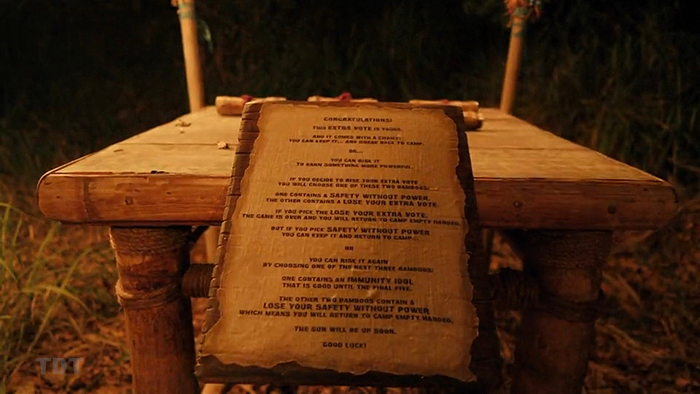 CONGRATULATIONS!
THIS EXTRA VOTE IS YOURS.
AND IT COMES WITH A CHOICE:
YOU CAN KEEP IT... AND SNEAK BACK TO CAMP.
OR...
YOU CAN RISK IT
TO EARN SOMETHING MORE POWERFUL.
IF YOU DECIDE TO RISK YOUR EXTRA VOTE
YOU WILL CHOOSE ONE OF THESE TWO BAMBOOS.
ONE CONTAINS A SAFETY WITHOUT POWER.
THE OTHER CONTAINS A LOSE YOUR EXTRA VOTE.
IF YOU PICK THE LOSE YOUR EXTRA VOTE,
THE GAME IS OVER AND YOU WILL RETURN TO CAMP EMPTY HANDED.
BUT IF YOU PICK SAFETY WITHOUT POWER
YOU CAN KEEP IT AND RETURN TO CAMP...
OR
YOU CAN RISK IT AGAIN
BY CHOOSING ONE OF THE NEXT THREE BAMBOOS:
ONE CONTAINS AN IMMUNITY IDOL
THAT IS GOOD UNTIL THE FINAL FIVE.
THE OTHER TWO BAMBOOS CONTAIN A
LOSE YOUR SAFETY WITHOUT POWER
WHICH MEANS YOU WILL RETURN TO CAMP EMPTY HANDED.
THE SUN WILL BE UP SOON.
GOOD LUCK!
TDT